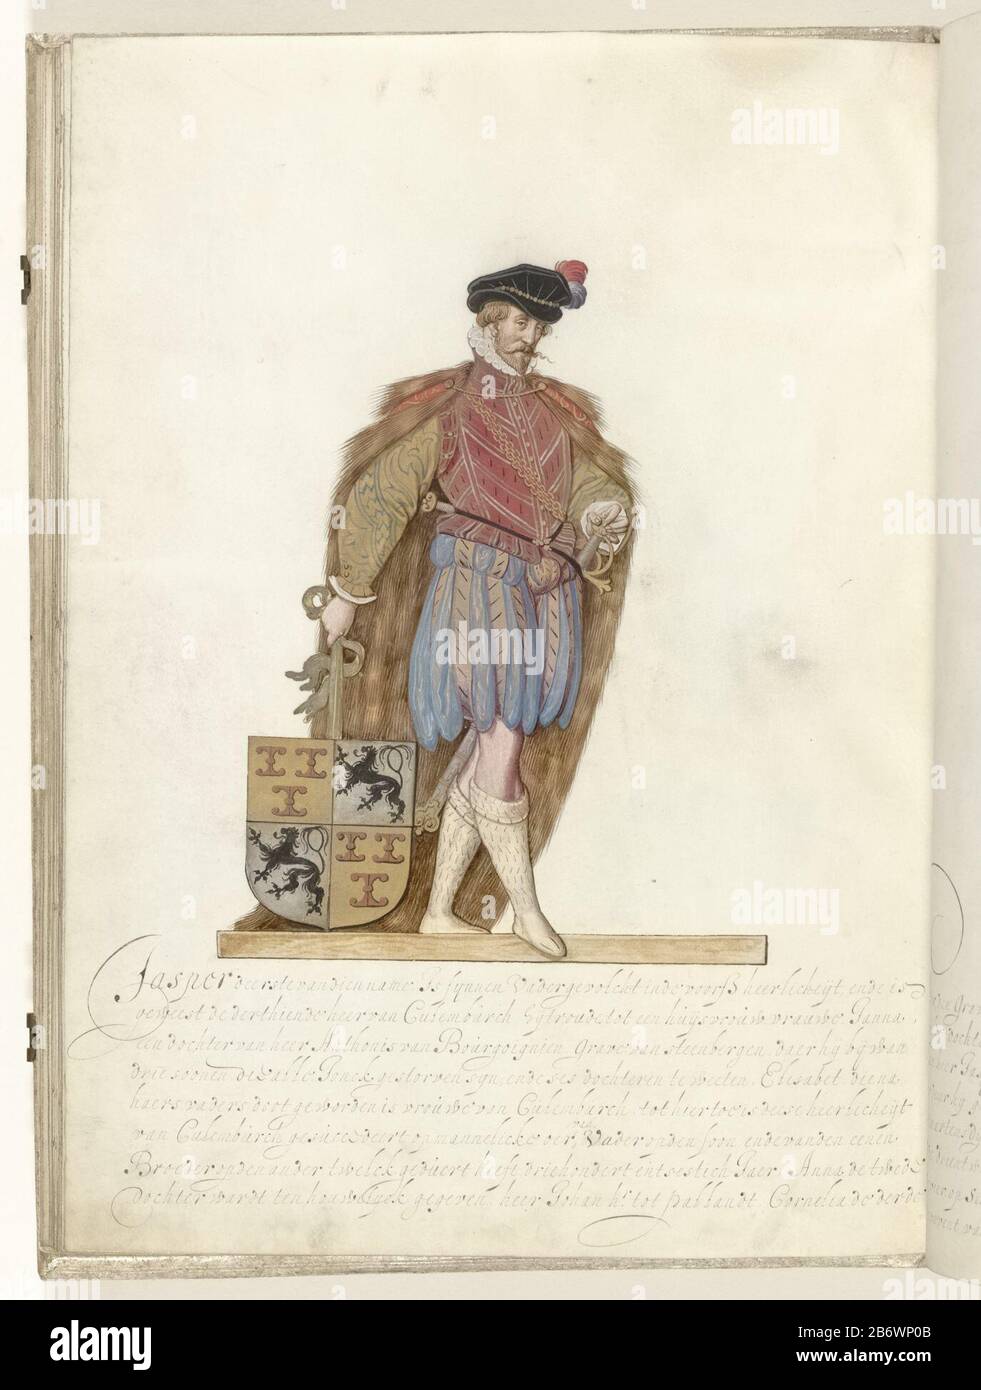 Jasper de erste van dien name. Is synnen Vader gevolcht in de voors. heerlicheijt, ende is
geweest de derthiende heer van Culemburch hij troude tot een huijsvrouw vrauwe Janna,
een dochter van heer Anthonis van Bourgoignien Grave van steenbergen, daer hij bij wan
drie soonen die alle Jonck gestorven syn, ende ses dochteren te weeten. Elisabet die na
haers vaders doot geworden is vrouwe van Culemburch, tot hier toe is dese heerlicheijt
van Culemburch gesuccedeert op mannelicke oer, Vader op den soon ende van den eenen
Broeder op den ander twelck geduert heeft driehondert ent sestich Jaer. Anna de twede
dochter wardt ten houwelyck gegeven, heer Johan hr. tot pallandt. Cornelia de derde
alamy
Image ID: 2B6WP0B
www.alamy.com